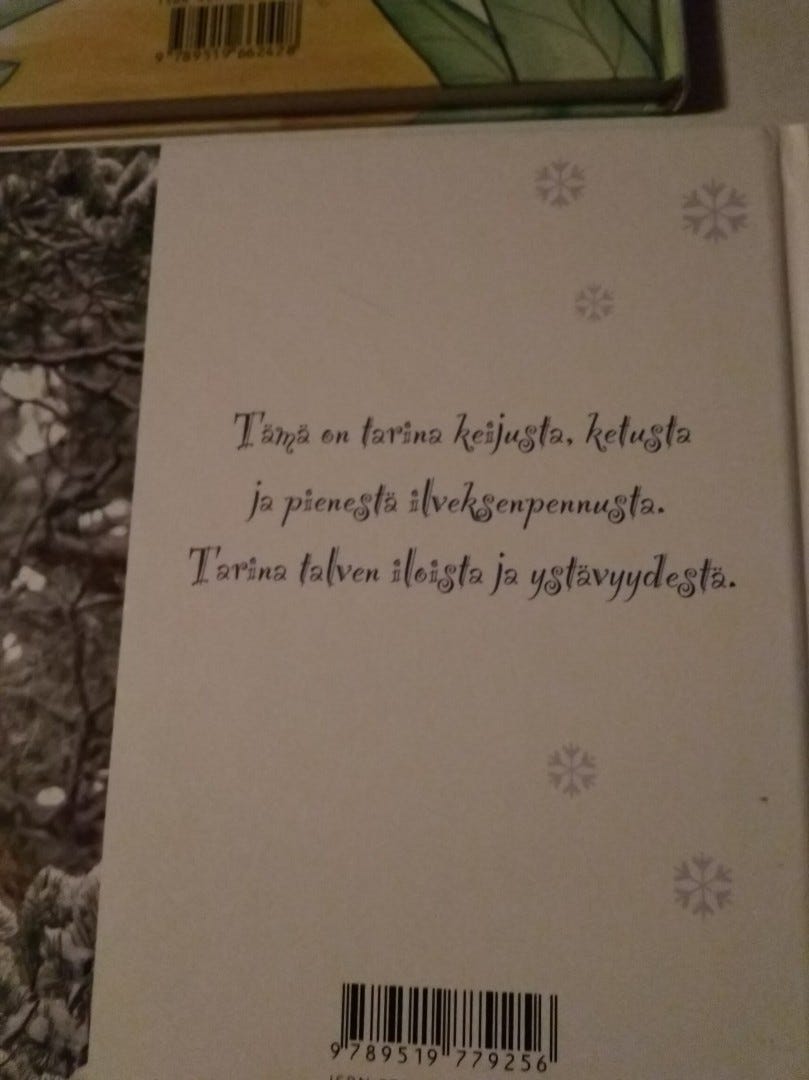 9 789519 662428
Tämä on tarina keijusta, ketusta
ja pienestä ilveksenpennusta.
Tarina talven iloista ja ystävyydestä.
9 789519 779256